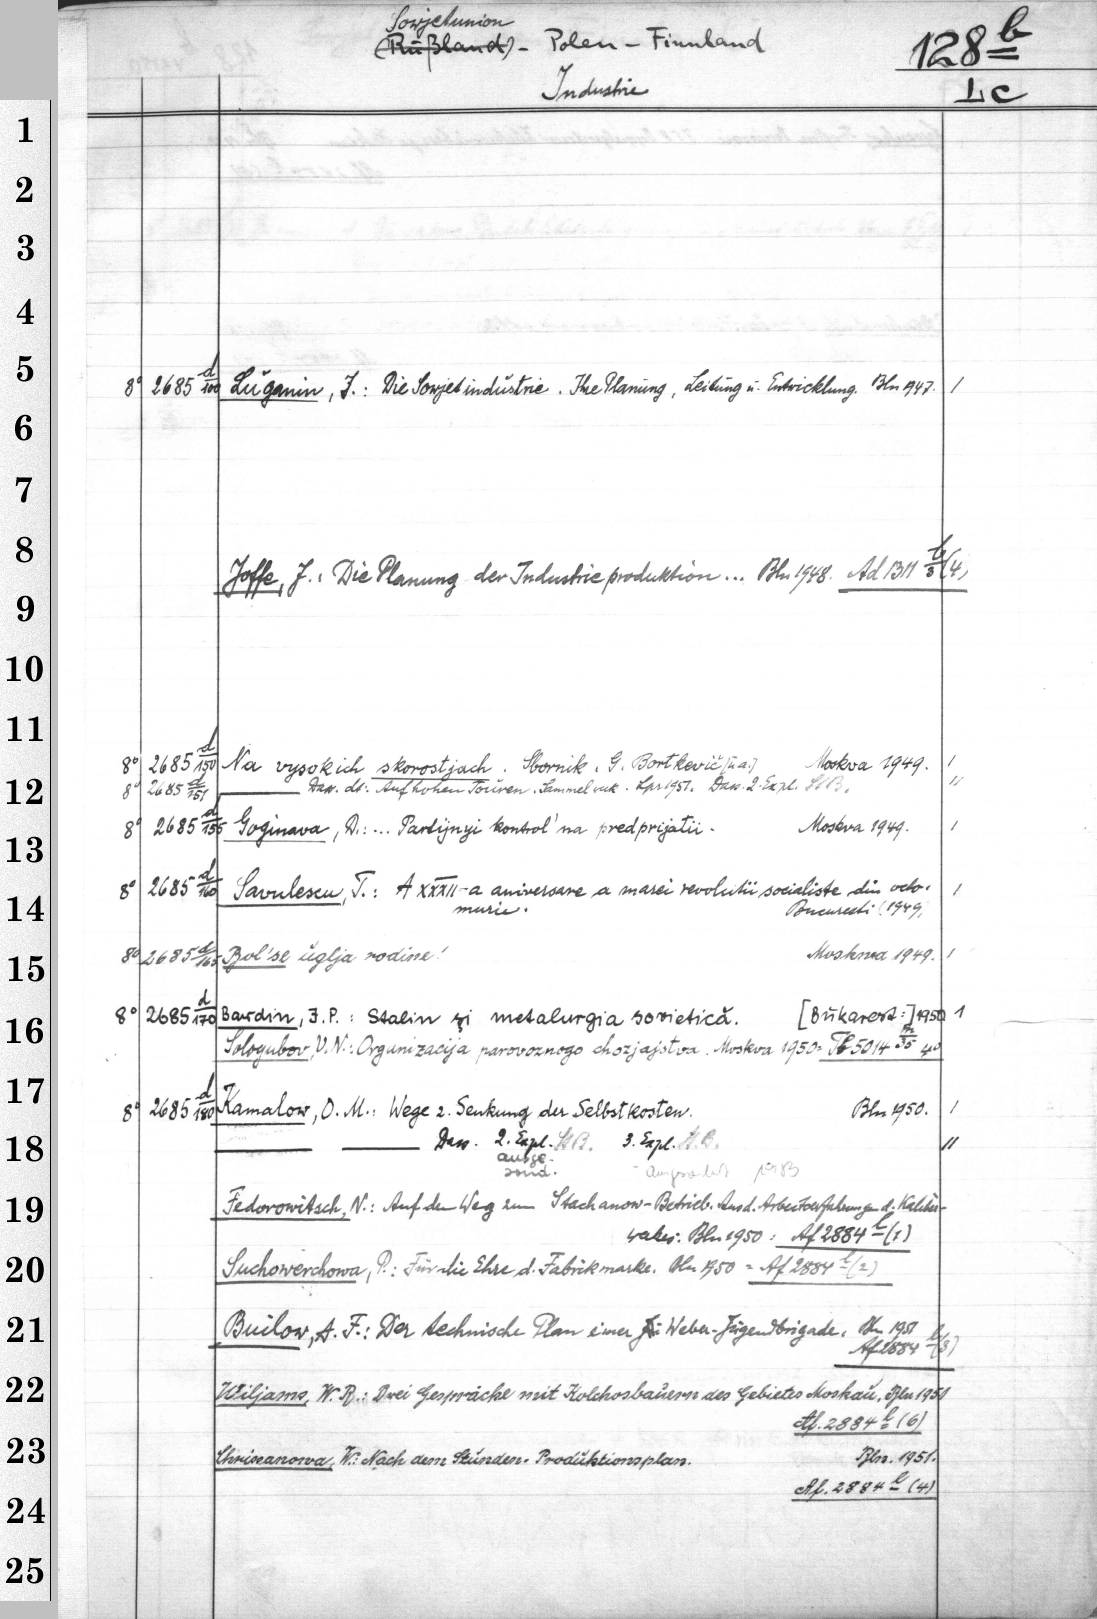 Sowjetunion
(Rußland) - Polen - Finnland
128 b
Industrie
Lc
1
2
3
4
5
8° 2685 d/100 Luganin, J.: Die Sowjetindustrie. Ihre Planung, Leitung u. Entwicklung. Bln 1947. 1
6
7
8
Joffe, J.: Die Planung der Industrieproduktion ... Bln 1948. Ad 1311 b/3 (4)
9
10
11
8° 2685 d/150 Na vysokich skorostjach. Sbornik. G. Bortkevič [u.a.] Moskva 1949. 1
12
8° 2685 d/151 Dass. dt.: Auf hohen Touren. Sammelwk. Lpz 1951. Dass. 2. Expl. StB. "
8° 2685 d/155 Goginava, A.: ... Partijnyi kontrol' na predprijatii. Moskva 1949. 1
13
8° 2685 d/160 Savulescu, T.: A XXXII-a aniversare a marei revolutii socialiste din octo-
14
murie. Bucuresti (1949)
8° 2685 d/165 Bol'se uglja rodine! Moskwa 1949. 1
15
8° 2685 d/170 Bardin, I.P.: Stalin și metalurgia sovietică. [Bukarest:] 1950 1
16
Sologubov, V.N.: Organizacija parovoznogo chozjajstva. Moskva 1950 = Tb 5014 m/35 4°
17
8° 2685 d/180 Kamalow, O. M.: Wege z. Senkung der Selbstkosten. Bln 1950. 1
18
Dass. 2. Expl. StB. 3. Expl. St.B. "
ausge-
sond.
19
Fedorowitsch, N.: Auf dem Weg zum Stachanow-Betrieb. Aus d. Arbeitserfahrungen d. Kaliber-
werkes. Bln 1950 = Af 2884 b (1)
20
Suchowerchowa, P.: Für die Ehre d. Fabrikmarke. Bln 1950 = Af 2884 b (2)
21
Builow, A. F.: Der technische Plan einer Weber-Jugendbrigade. Bln 1951
Af 2884 b (3)
22
Wiljams, W. R.: Drei Gespräche mit Kolchosbauern des Gebietes Moskau. Bln 1951
Af. 2884 b (6)
23
Chrisanowa, W.: Nach dem Stunden-Produktionsplan. Bln. 1951.
Af. 2884 b (4)
24
25